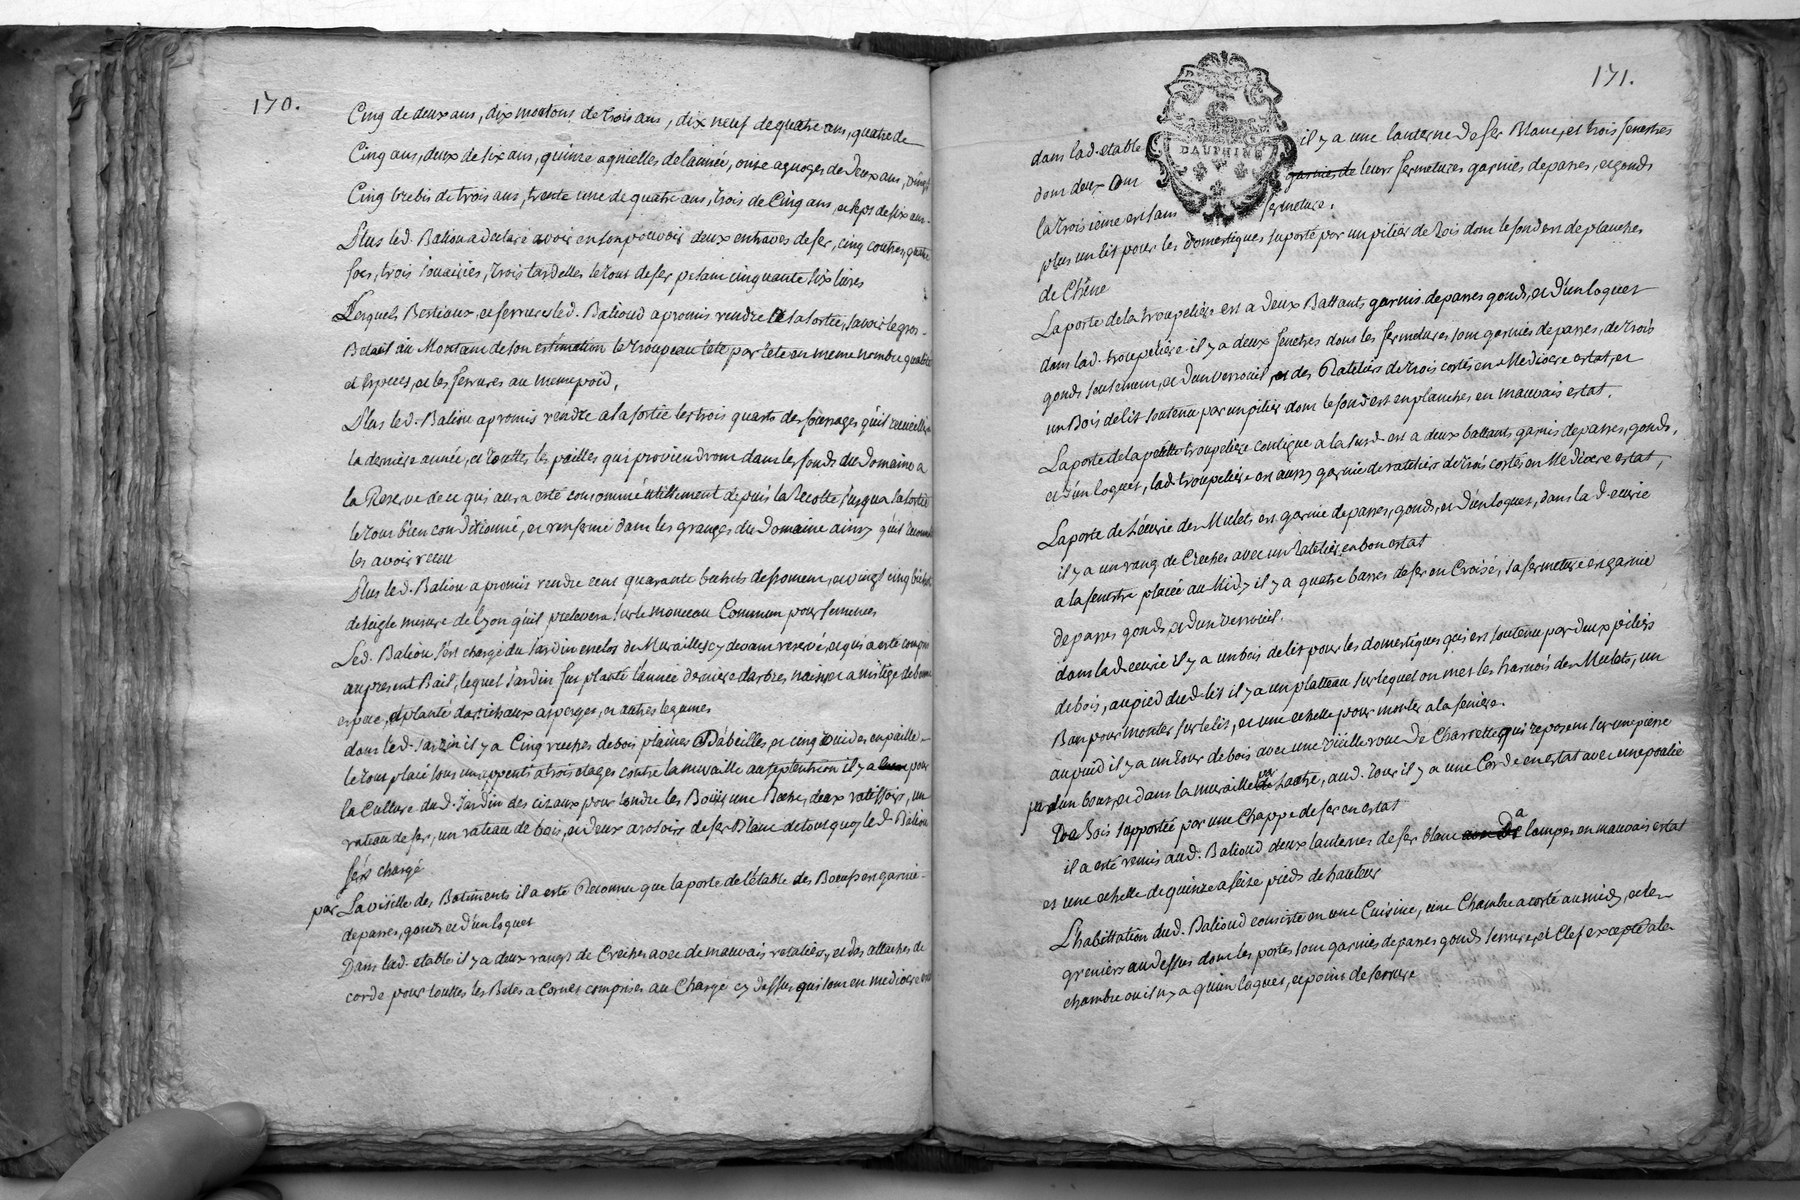 170.
Cinq de deux ans, dix moutons de trois ans, dix neuf de quatre ans, quatre de
Cinq ans, deux de six ans, quinze agnielles de l'année, onze agnoges de deux ans, vingt
Cinq brebis de trois ans, trente une de quatre ans, trois de Cinq ans, et sept de six ans.
Plus led. Baliou a declaré avoir en son pouvoir deux entraves de fer, cinq coutres, quatre
trois tardelles le tout de fer pesant cinquante six livres
Lesquels Bestiaux, et ferrures led. Balioud a promis rendre a sa sortie, savoir le gros
Betail au Montant de son estimation le troupeau tete par tete en meme nombre qualité
et especes, et les ferrures au meme poid,
Plus led. Baliou a promis rendre a la sortie les trois quarts des fourrages qu'il recueillira
la derniere année, et touttes les pailles qui proviendront dans les fonds du Domaine a
la Reserve de ce qui aura esté consommé utillement depuis la Recolte jusqua sa sortie
le tout bien conditionné, et renfermé dans les granges du Domaine ainsy qu'il reconnoit
les avoir receu
Plus led. Baliou a promis rendre cent quarante bichets de froment, et vingt cinq bichets
de seigle mesure de Lyon qu'il prelevera sur le monceau Commun pour semences
Led. Baliou s'est chargé du Jardin enclos de Murailles cy devant reservé, et qui a esté compris
au present Bail, lequel Jardin fut planté l'année derniere d'arbres nains et a mi tige de bonne
espece, et planté d'artichaux asperges, et autres legumes
dans led. Jardin il y a Cinq ruches de bois plaines D'abeilles et cinq vuides en paille
le tout placé sous un appenti a trois etages contre la muraille au septentrion il y a pour
la Culture dud. Jardin des cizaux pour tondre les Bouis une Beche, deux ratissoirs, un
rateau de fer, un rateau de bois, et deux arosoirs de fer Blanc de tout quoy led. Baliou
s'est chargé
par La visitte des Batiments il a esté Reconnu que la porte de l'étable des Boeufs en garnie
de parres, gonds et d'un loquet
Dans lad. etable il y a deux rangs de Creches avec de mauvais rateliers, et des attaches de
corde pour touttes les Betes a Cornes comprises au Chargé cy dessus qui sont en mediocre estat
171.
DAUPHINE
dans lad. etable il y a une lanterne de fer Blanc, et trois fenestres
dont deux ont garnies de leurs fermetures garnies de parres, et gonds
la troisieme est sans fermeture.
plus un lit pour les domestiques suporté par un pilier de bois dont le fond est de planches
de Chêne
La porte de la troupeliere est a deux Battants garnis de parres gonds, et d'un loquet
dans lad. troupeliere il y a deux fenetres dont les fermetures sont garnies de parres, et
gonds seulement, et d'un verrouil, et des Rateliers de trois cottés en Mediocre estat, et
un Bois de lit soutenu par un pilier dont le fond est en planches en mauvais estat.
La porte de la petitte troupeliere contigue a la susd. est a deux battants garnis de parres, gonds,
et d'un loquet, lad. troupeliere est aussy garnie de rateliers de trois cottés en Mediocre estat,
La porte de L'écurie des Mulets est garnie de parres, gonds, et d'un loquet, dans lad. ecurie
il y a un rang de Creches avec un Ratelier en bon estat
a la fenestre placée au Midy il y a quatre barres de fer en Croisé, sa fermeture en garnie
de parres gonds et d'un verrouil.
dans lad. ecurie il y a un bois de lit pour les domestiques qui est soutenu par deux piliers
de bois, au pied dud. lit il y a un platteau sur lequel on met les harnois des Mulets, un
Ban pour monter sur le lit, et une echelle pour monter a la feniere.
au puid il y a un tour de bois avec une vieille roue de Charrette qui reposent sur une pierre
d'un bout, et dans la muraille par l'autre, aud. tour il y a une Corde en estat avec une poulie
De bois supportée par une Chappe de fer en estat
il a esté remis aud. Balioud deux lanternes de fer blanc a lampes en mauvais estat
et une echelle de quinze a seize pieds de hauteur
L'habittation dud. Balioud consiste en une Cuisine, une Chambre a cotté au midy, et des
greniers au dessus dont les portes sont garnies de parres gonds serrures, et Clef excepté a la
chambre ou il n'y a qu'un loquet, et point de serrure